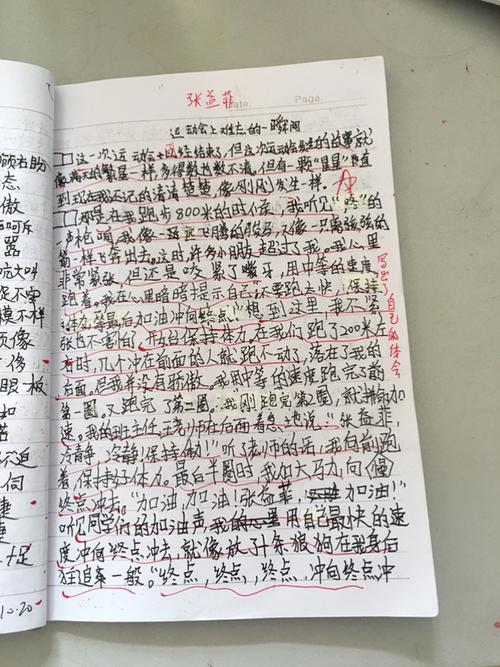 张益菲
Date. Page.
运动会上难忘的一瞬间
这一次运动会已经结束了,但这次运动会发生的故事就
像满天的繁星一样多得数也数不清。但有一颗"星星"直
到现在我还记的清清楚楚,像刚刚发生一样。
那是在我跑步800米的时候,我听见"咚"的
一声枪响,我像一匹飞腾的骏马又像一只离弦的
箭一样飞奔出去。这时,许多小朋友超过了我。我心里
非常紧张,但还是咬紧了嘴牙,用中等的速度
跑着。我在心里暗暗提示自己"不要跑太快,保持
体力,等最后加油冲向终点!"想到这里,我不紧
张也不害怕了,怕后保持体力。在我们跑了200米左
右时,几个冲在前面的人就跑不动了,落在了我的
后面,但我并没有骄傲。我用中等的速度跑完了前
第一圈。又跑完了第二圈。我刚跑完第二圈,就拼命加
速。我的班主任王老师在后面着急地说:"张益菲,
冷静,冷静!保持体力!"听了老师的话,我向前跑
着,保持好体力。最后半圈时,我加大马力向
终点冲去。"加油,加油!张益菲,加油!"
听见同学们的加油声,我用自己最快的速
度冲向终点冲去,就像放了十条狼狗在我身后
狂追来一般。"终点,终点,终点,冲向终点冲
写出了自己的体会
顾右盼
态
傲
呵斥
器
亢大叫
模不样
须像
眼板
如
苦
不迫
伺
捷
走
十足
10.20